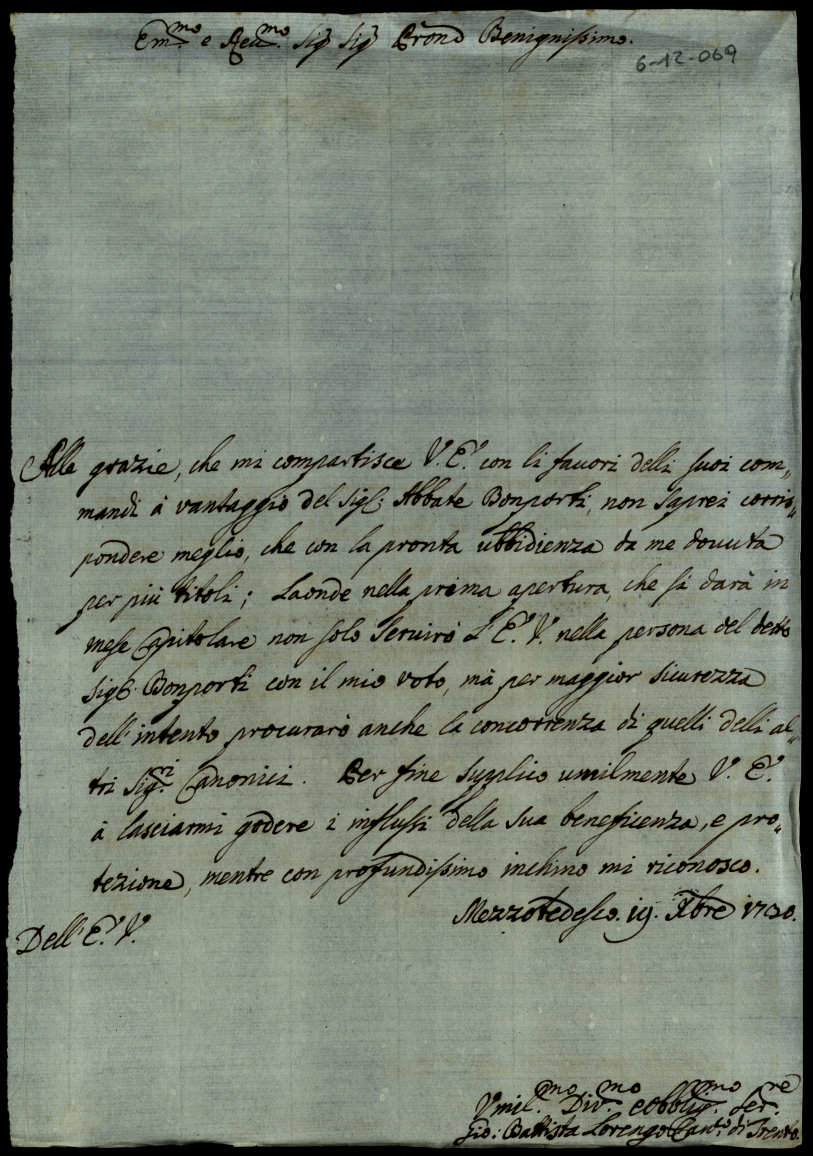 Em.mo e Reu.mo Sig.r Sig.r Pron.e Benignissimo.
6-12-069
Alle grazie, che mi compartisce V. E. con li fauori delli suoi com„
mandi à vantaggio del Sig.r Abbate Bonporti, non saprei corris„
pondere meglio, che con la pronta ubbidienza da me douuta
per più titoli; Laonde nella prima apertura, che si darà in
mese Capitolare non solo seruirò L'E. V. nella persona del detto
Sig.r Bonporti con il mio voto, mà per maggior sicurezza
dell'intento procurarò anche la concorrenza di quelli delli al„
tri Sig.ri Canonici. Per fine supplico umilmente V. E.
à lasciarmi godere i influssi della sua beneficenza, e pro„
tezione, mentre con profundissimo inchino mi riconosco.
Mezzotedesco. 19. Xbre
Dell'E. V.
Vmil.mo Div.mo e obblig.mo Ser.re
Gio: Battista Can.co di Trento.